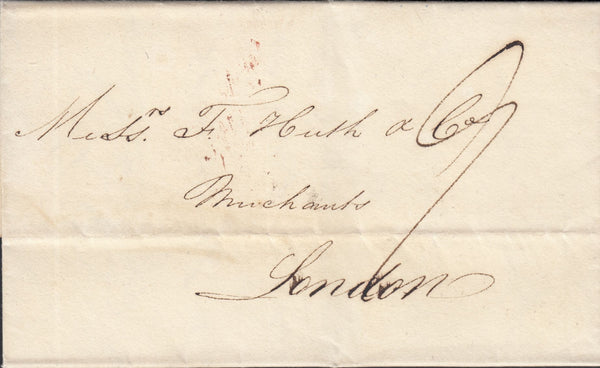 Messrs. F. Huth & Co
Merchants
London